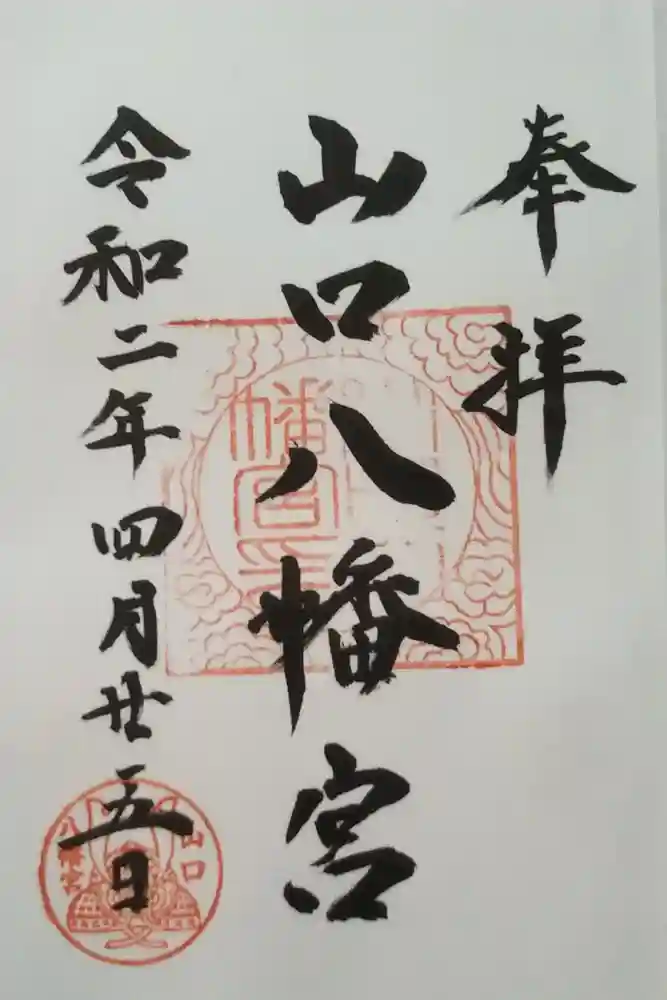 奉拝
山口八幡宮
令和二年四月廿五日
山口
八幡宮